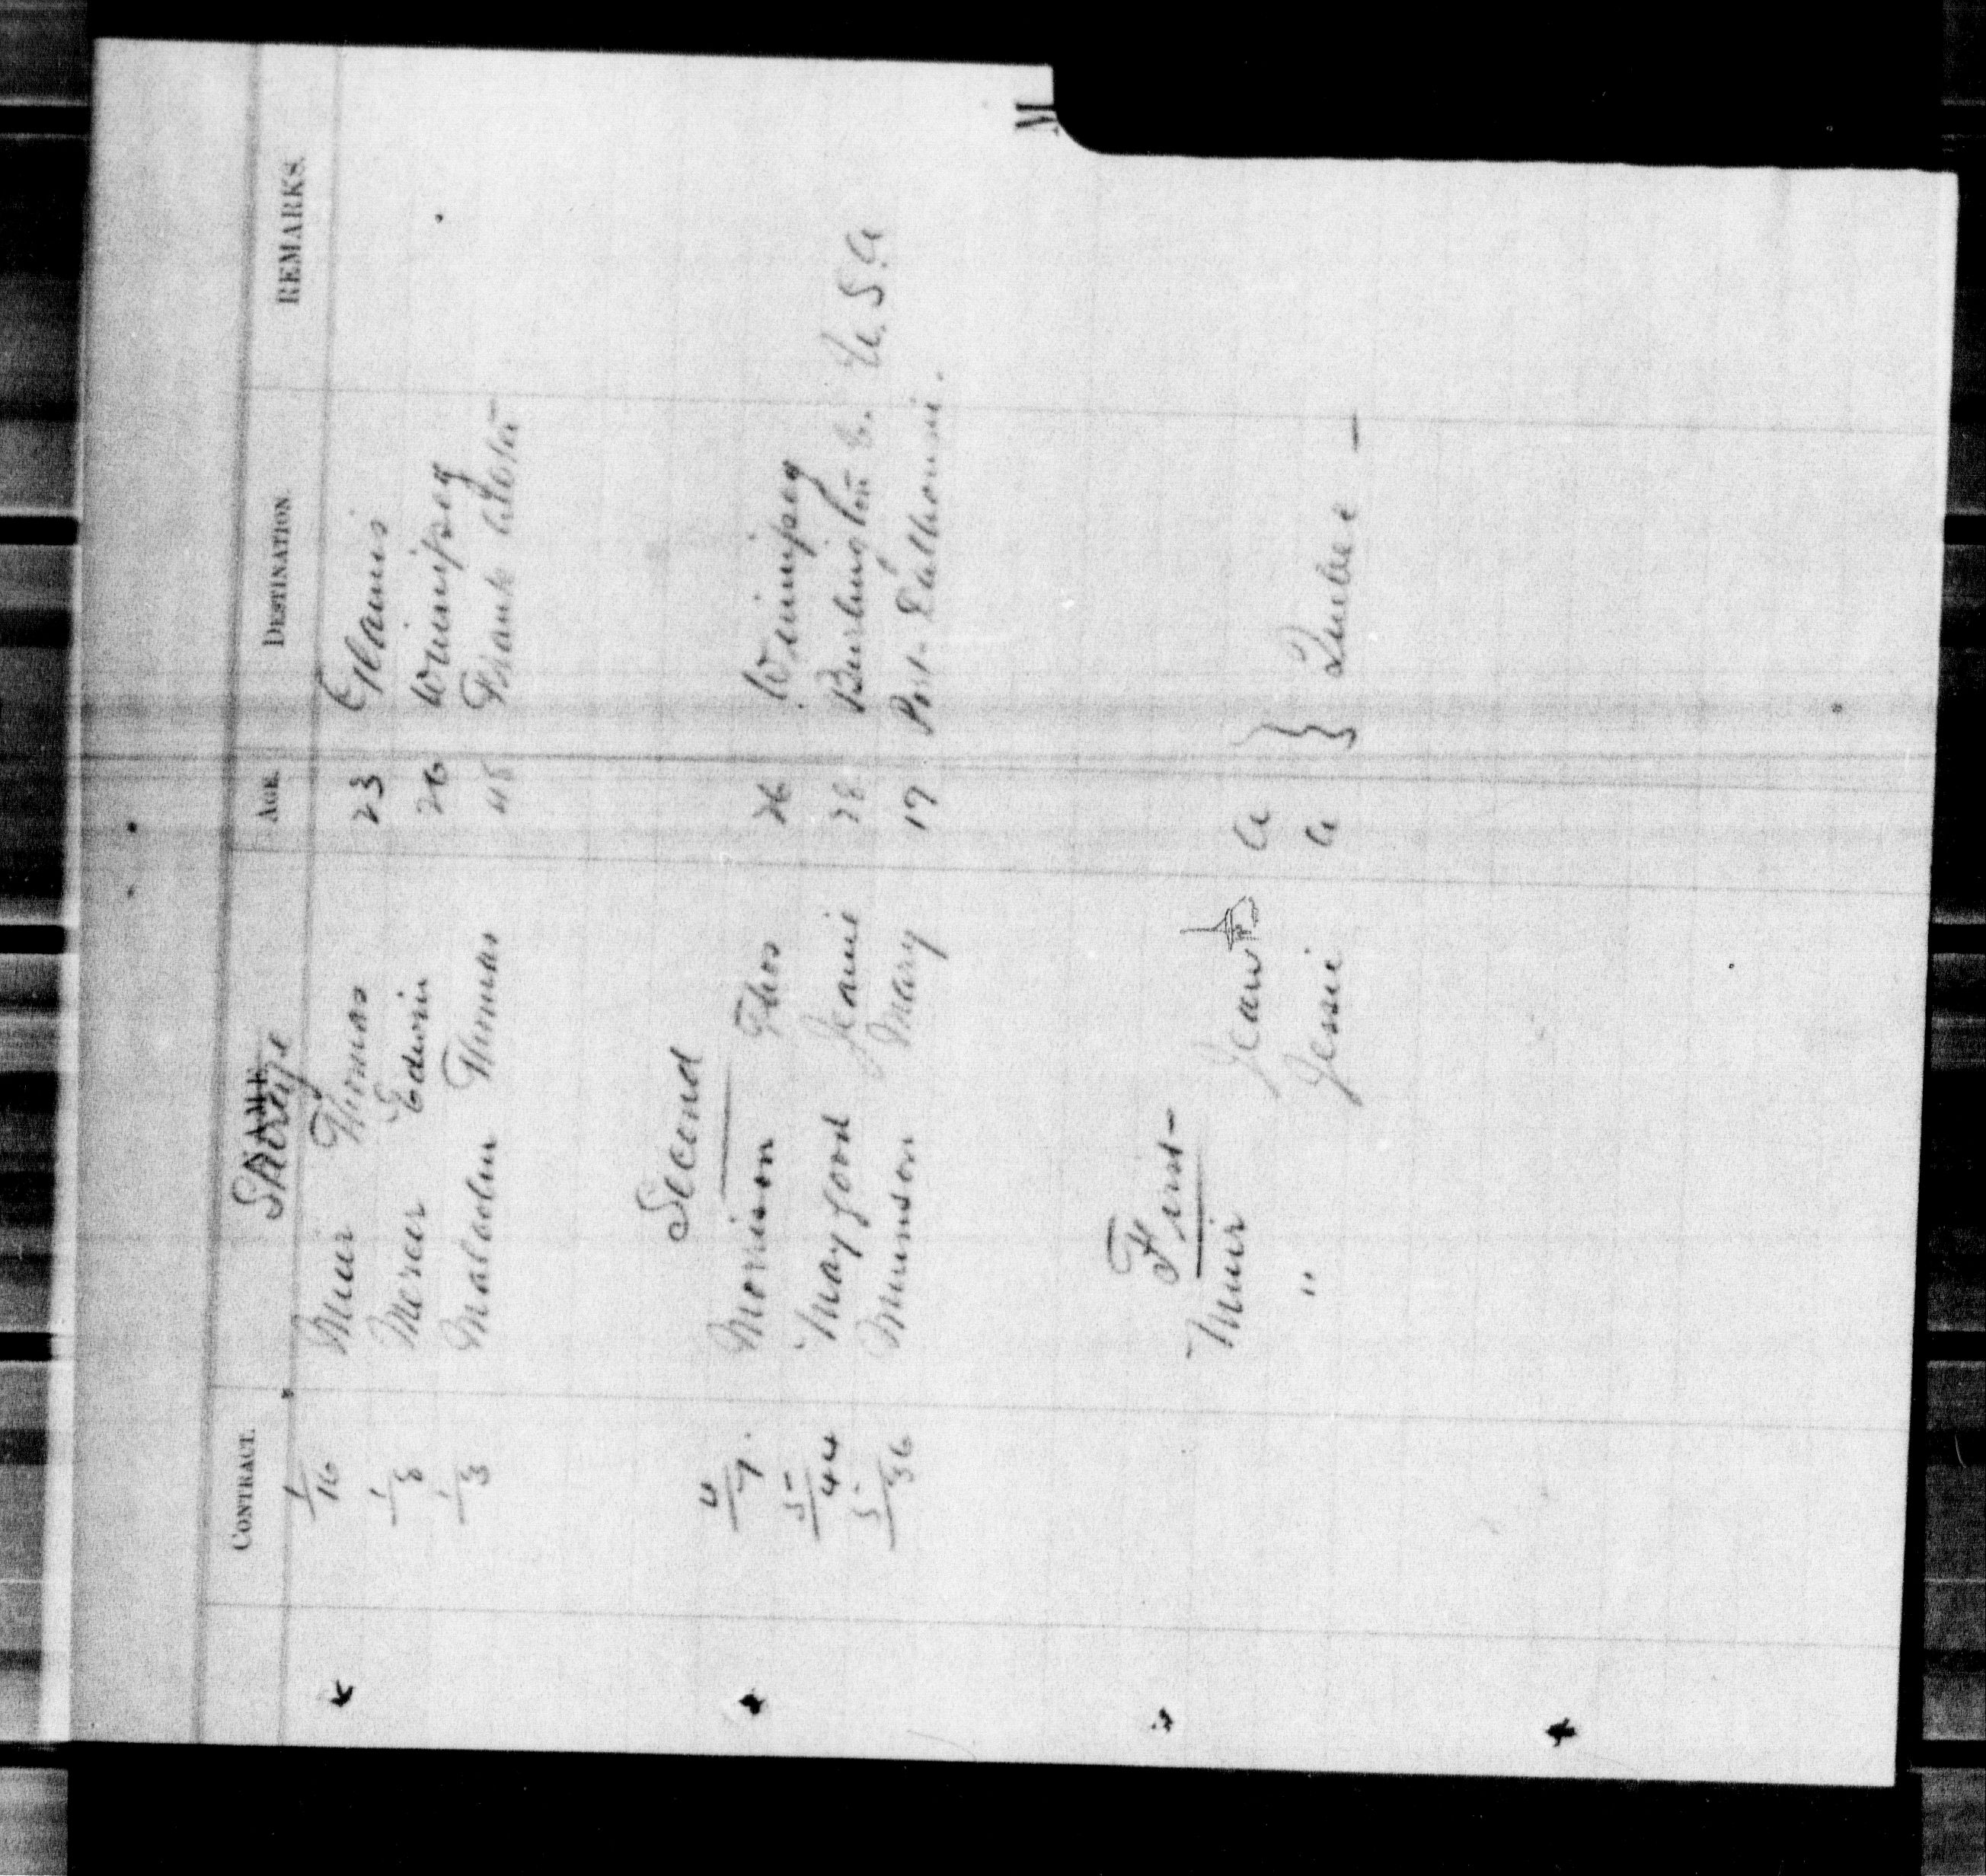 M
CONTRACT. NAME AGE. DESTINATION. REMARKS.
Steerage
1/16 Muir Thomas 23 Glamis
1/8 Mercer Edwin 26 Winnipeg
1/3 Malcolm Thomas 48
Second
4/7. Morrison Thos 26 Winnipeg
5/44 Maygood Jeanie 28 Burlington U.S.A
5/36 Munson Mary 17 Port Dalhousie.
First
Muir Jean a
" Jessie a } Quebec —